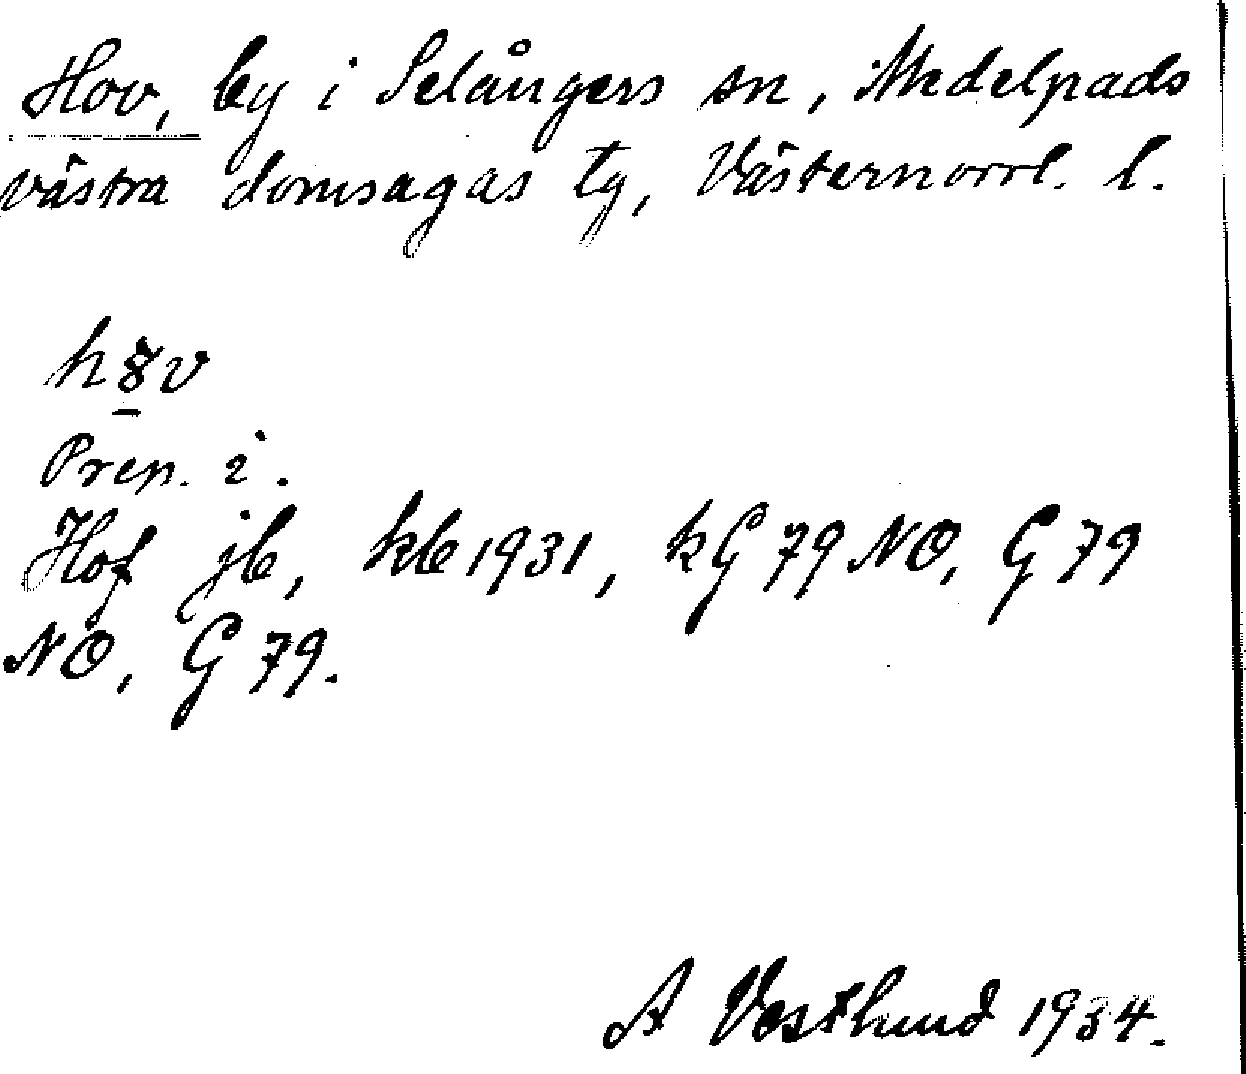 Hov, by i Selångers sn, Medelpads
västra domsagas tg, Västernorrl. l.
Prep. i.
Hof jb, kb 1931, kG 79 NO, G 79
NO, G 79.
A Vestlund 1934.